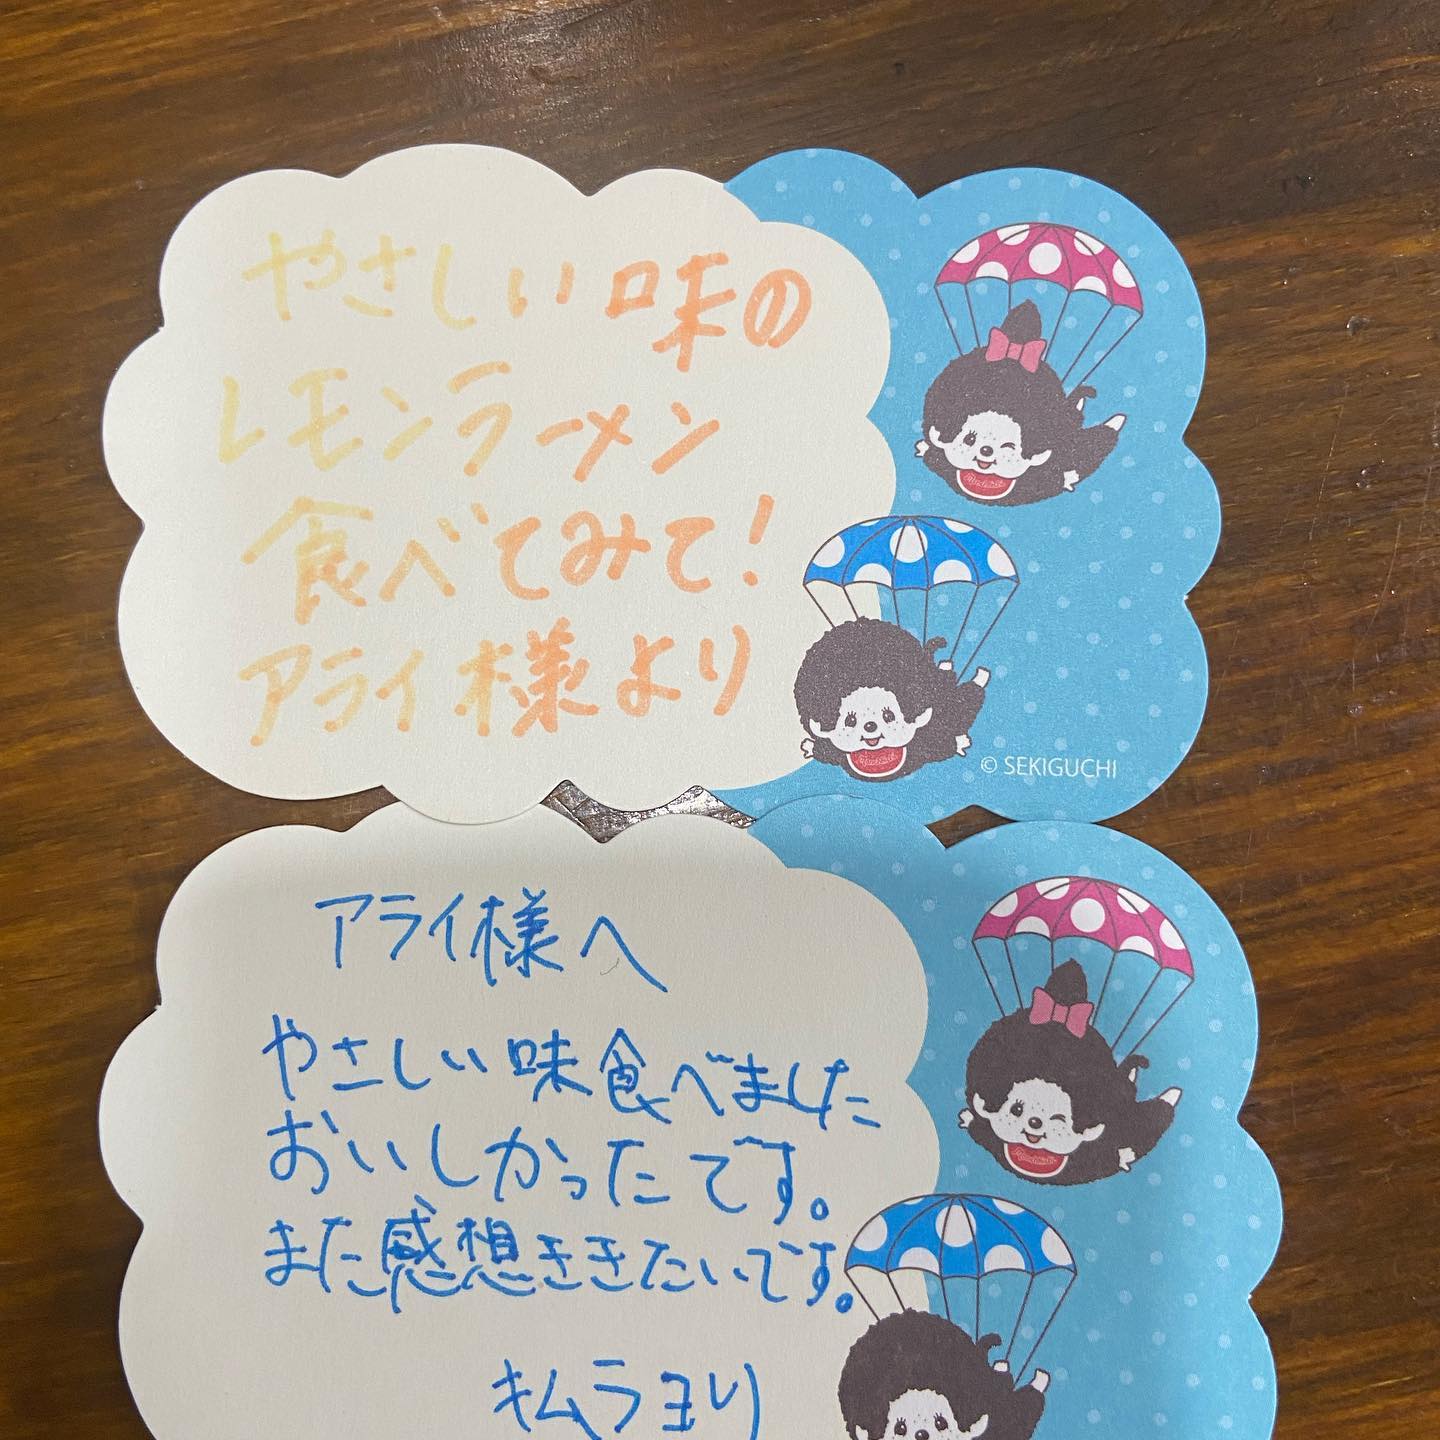 やさしい味の
レモンラーメン
食べてみて!
アライ様より
© SEKIGUCHI
アライ様へ
やさしい味食べました
おいしかったです。
また感想ききたいです。
キムラヨリ